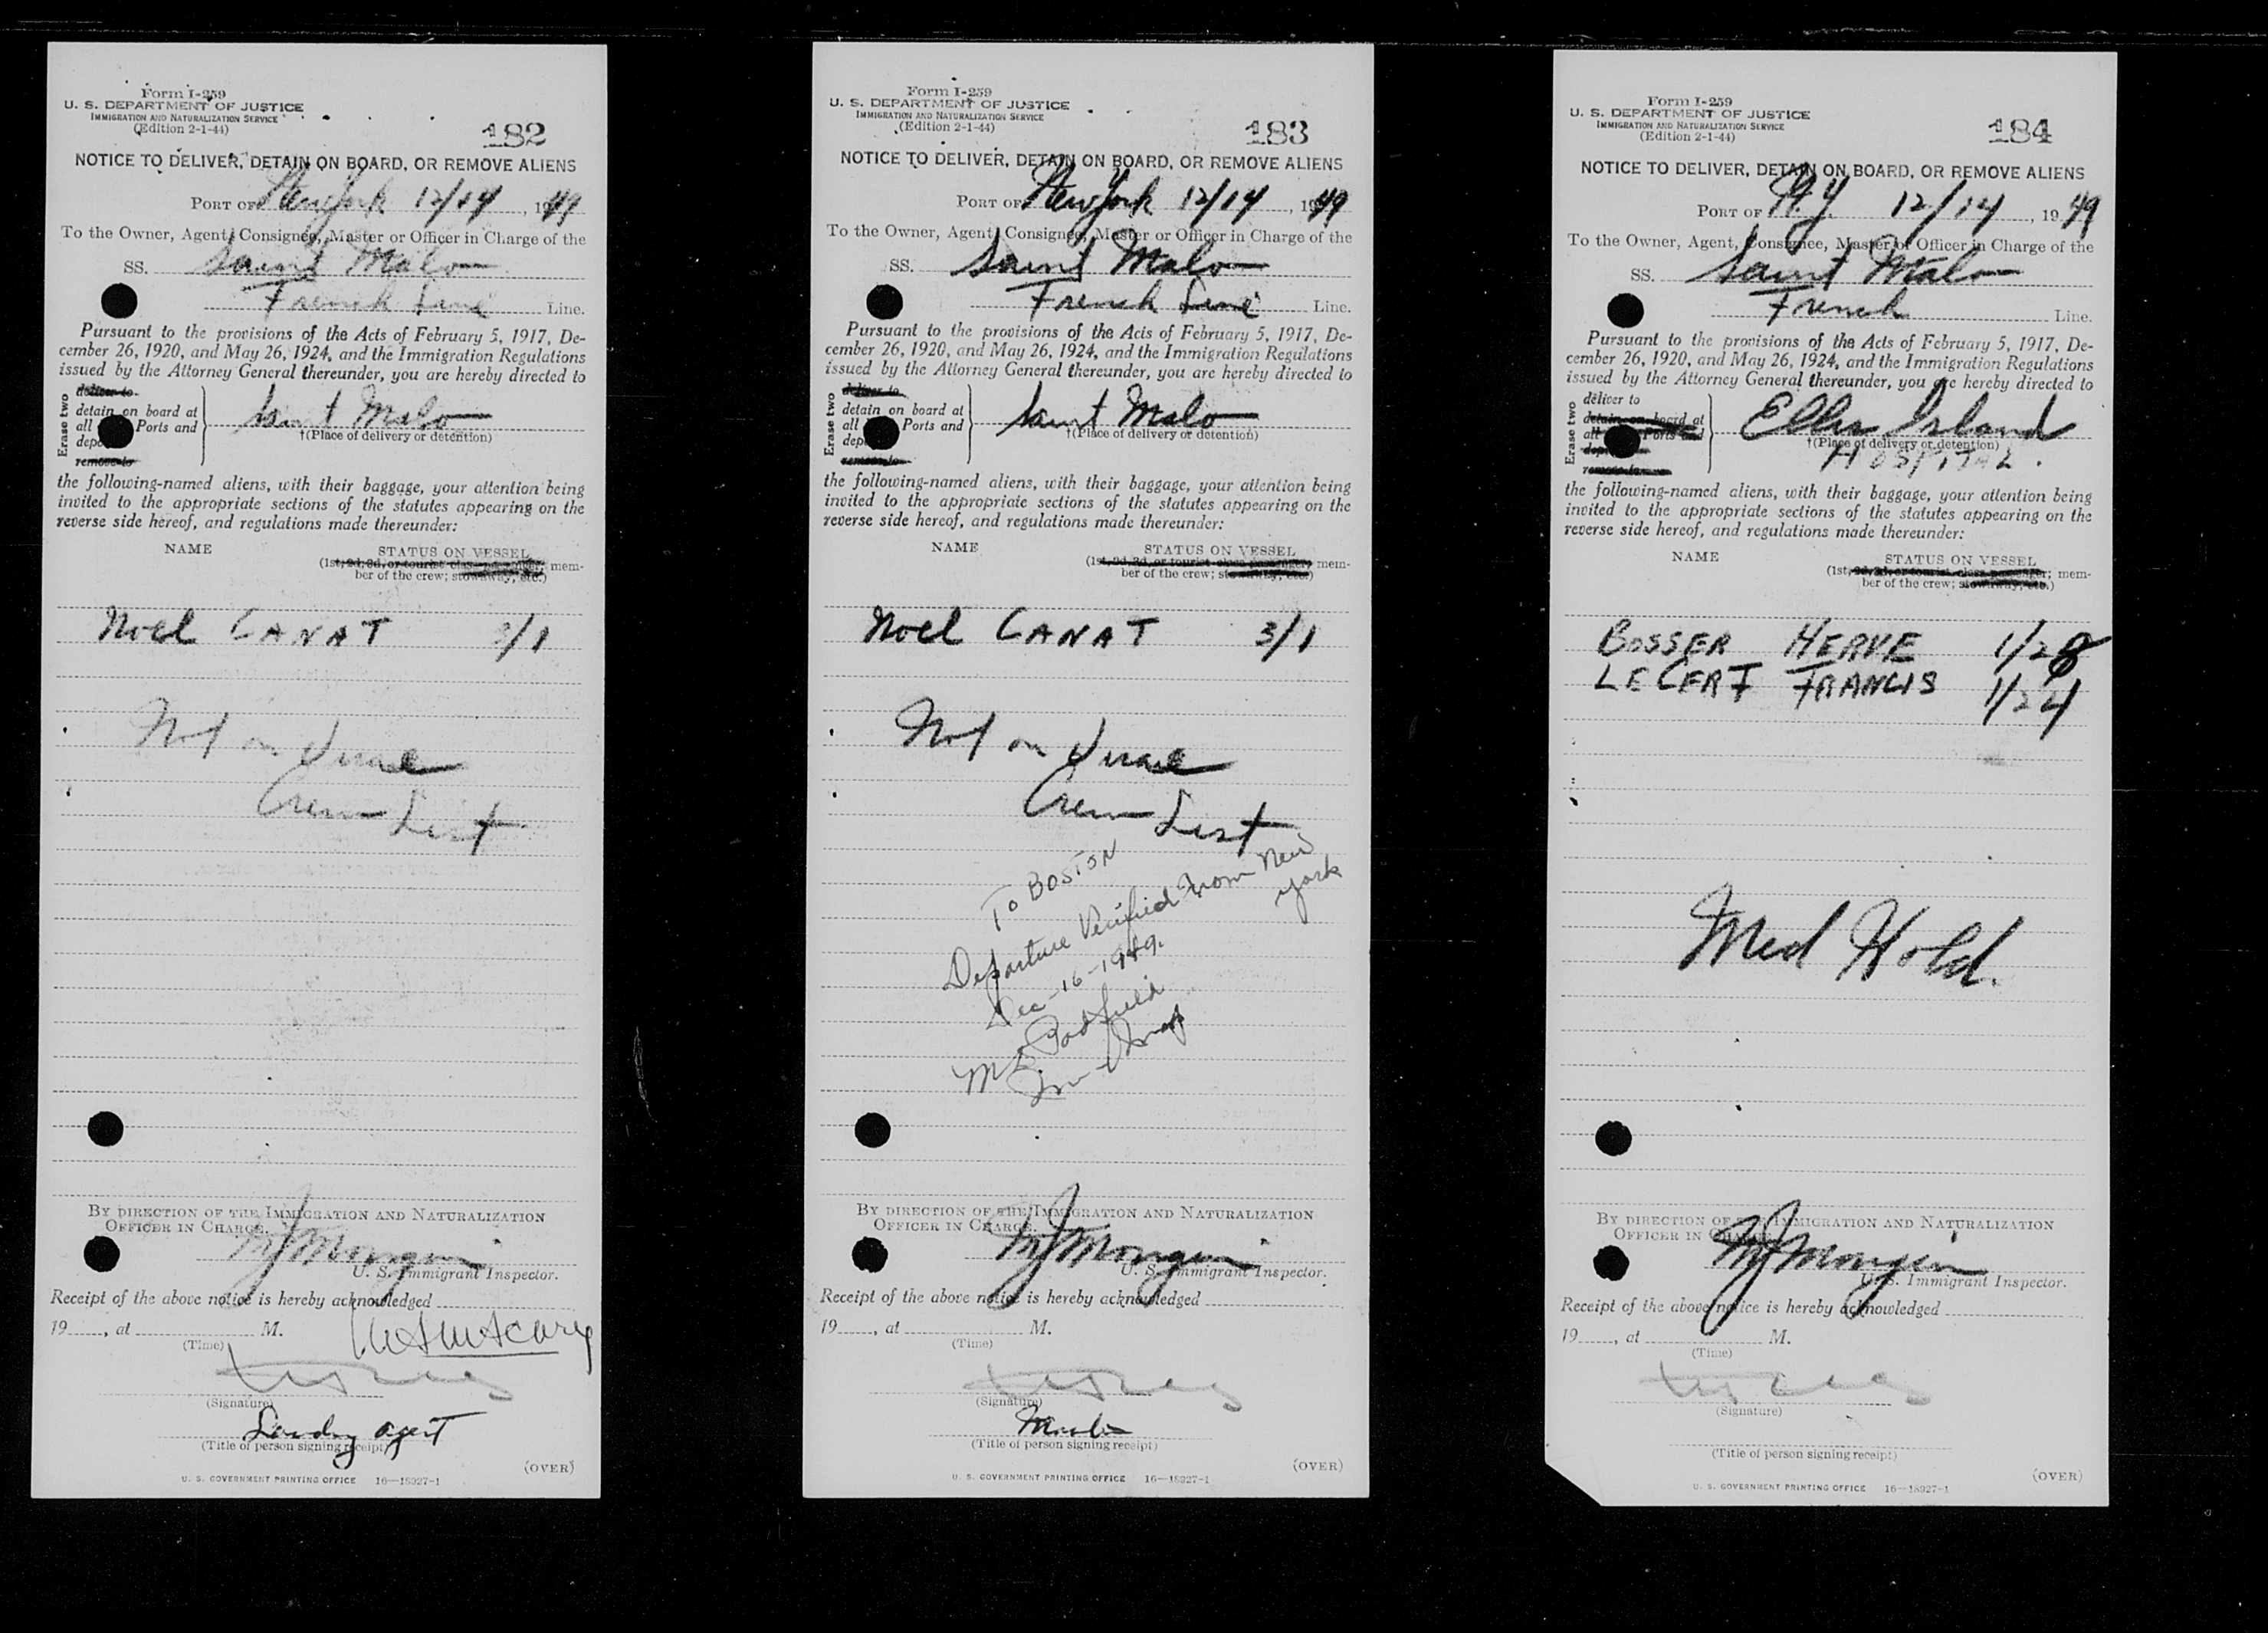 Form I-259
U. S. DEPARTMENT OF JUSTICE
IMMIGRATION AND NATURALIZATION SERVICE
(Edition 2-1-44)
182
NOTICE TO DELIVER, DETAIN ON BOARD, OR REMOVE ALIENS
PORT OF New York 12/14, 1949
To the Owner, Agent, Consignee, Master or Officer in Charge of the
SS. Saint Malo
French Line Line.
Pursuant to the provisions of the Acts of February 5, 1917, De-
cember 26, 1920, and May 26, 1924, and the Immigration Regulations
issued by the Attorney General thereunder, you are hereby directed to
Erase two
deliver to
detain on board at
all Ports and
Saint Malo
†(Place of delivery or detention)
remove to
the following-named aliens, with their baggage, your attention being
invited to the appropriate sections of the statutes appearing on the
reverse side hereof, and regulations made thereunder:
NAME
STATUS ON VESSEL
(1st, 2d, 3d, or tourist class passenger; mem-
ber of the crew; stowaway, etc.)
Noel CANAT 3/1
Not on
Crew List
BY DIRECTION OF THE IMMIGRATION AND NATURALIZATION
OFFICER IN CHARGE.
U. S. Immigrant Inspector.
Receipt of the above notice is hereby acknowledged
19, at M.
(Time)
(Signature)
agent
(Title of person signing receipt)
(OVER)
U. S. GOVERNMENT PRINTING OFFICE 16—18927-1
Form I-259
U. S. DEPARTMENT OF JUSTICE
IMMIGRATION AND NATURALIZATION SERVICE
(Edition 2-1-44)
183
NOTICE TO DELIVER, DETAIN ON BOARD, OR REMOVE ALIENS
PORT OF New York 12/14, 1949
To the Owner, Agent, Consignee, Master or Officer in Charge of the
SS. Saint Malo
French Line Line.
Pursuant to the provisions of the Acts of February 5, 1917, De-
cember 26, 1920, and May 26, 1924, and the Immigration Regulations
issued by the Attorney General thereunder, you are hereby directed to
Erase two
deliver to
detain on board at
all Ports and
Saint Malo
†(Place of delivery or detention)
remove to
the following-named aliens, with their baggage, your attention being
invited to the appropriate sections of the statutes appearing on the
reverse side hereof, and regulations made thereunder:
NAME
STATUS ON VESSEL
(1st, 2d, 3d, or tourist class passenger; mem-
ber of the crew; stowaway, etc.)
Noel CANAT 3/1
Not on
Crew List
To BOSTON
Departure Verified from New
York
Dec-16-1949.
BY DIRECTION OF THE IMMIGRATION AND NATURALIZATION
OFFICER IN CHARGE.
U. S. Immigrant Inspector.
Receipt of the above notice is hereby acknowledged
19, at M.
(Time)
(Signature)
(Title of person signing receipt)
(OVER)
U. S. GOVERNMENT PRINTING OFFICE 16—18927-1
Form I-259
U. S. DEPARTMENT OF JUSTICE
IMMIGRATION AND NATURALIZATION SERVICE
(Edition 2-1-44)
184
NOTICE TO DELIVER, DETAIN ON BOARD, OR REMOVE ALIENS
PORT OF N.Y. 12/14, 1949
To the Owner, Agent, Consignee, Master or Officer in Charge of the
SS. Saint Malo
French Line.
Pursuant to the provisions of the Acts of February 5, 1917, De-
cember 26, 1920, and May 26, 1924, and the Immigration Regulations
issued by the Attorney General thereunder, you are hereby directed to
Erase two
deliver to
detain on board at
all Ports and
Ellis Island
†(Place of delivery or detention)
HOSPITAL.
remove to
the following-named aliens, with their baggage, your attention being
invited to the appropriate sections of the statutes appearing on the
reverse side hereof, and regulations made thereunder:
NAME
STATUS ON VESSEL
(1st, 2d, 3d, or tourist class passenger; mem-
ber of the crew; stowaway, etc.)
BOSSER HERVE 1/28
LE CERF FRANCIS 1/24
Med Hold.
BY DIRECTION OF IMMIGRATION AND NATURALIZATION
OFFICER IN CHARGE.
U. S. Immigrant Inspector.
Receipt of the above notice is hereby acknowledged
19, at M.
(Time)
(Signature)
(Title of person signing receipt)
(OVER)
U. S. GOVERNMENT PRINTING OFFICE 16—18927-1